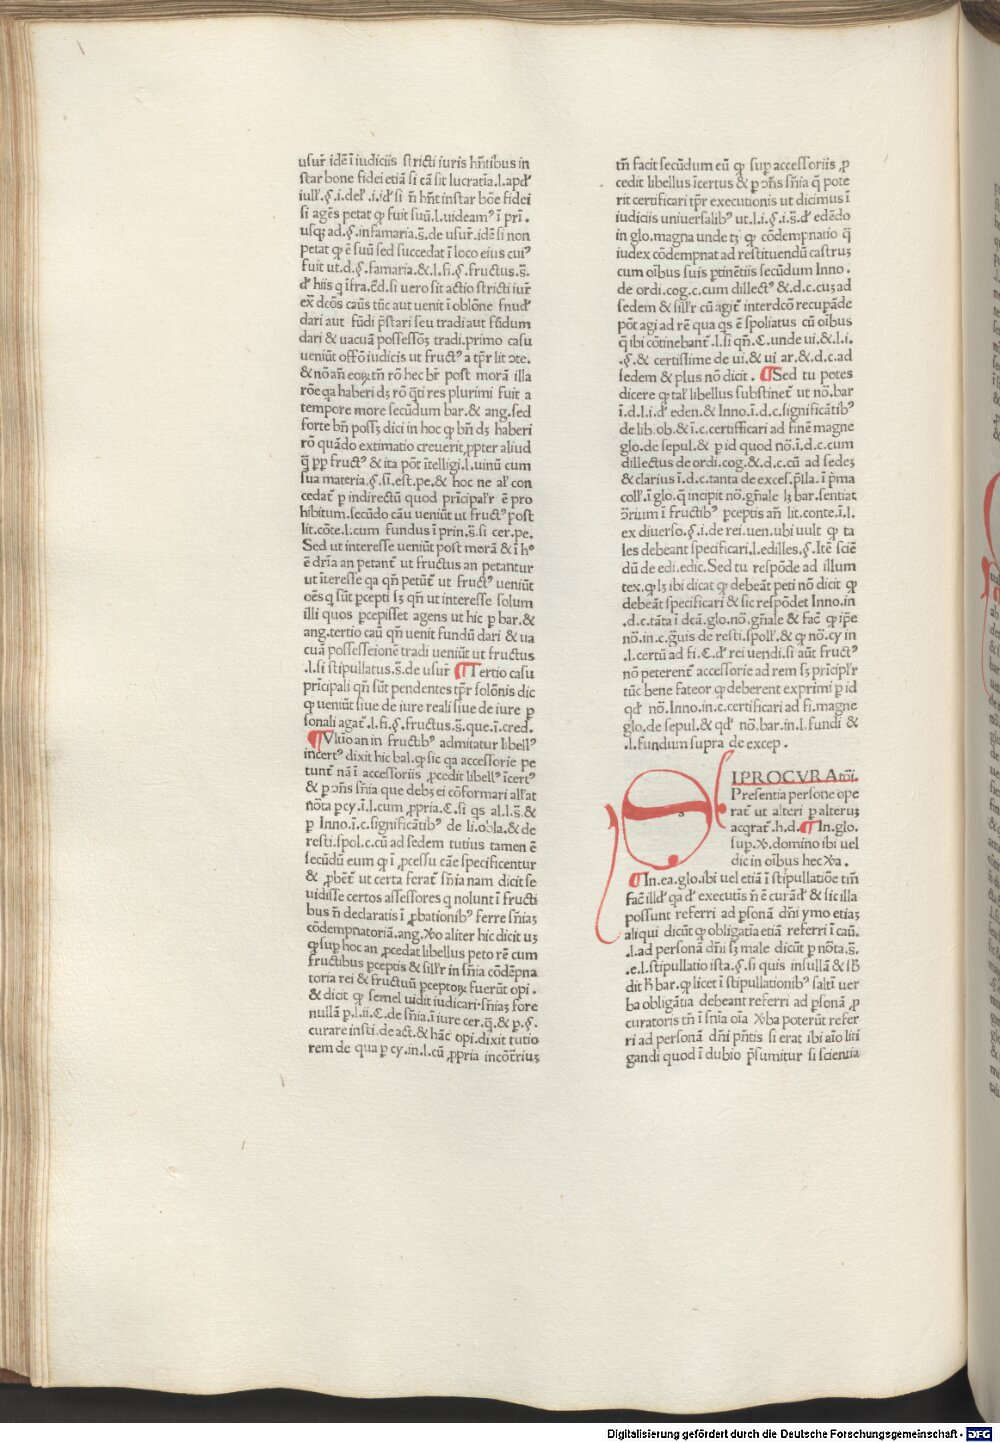 usur̄ idē ī iudiciis stricti iuris hn̄tibus in
star bone fidei etiā si cā sit lucratīa.l.apd̕
iul̕.§.i.def̕.i.id̕ si n̄ hn̄t instar bōe fidei
si agēs petat ꝙ fuit suū.l.uideam᾽ ī pri̅.
usq; ad.§.infamaria.s̄.de usur̄.idē si non
petat ꝙ ē suū sed succedat ī loco eius cui᾽
fuit ut.d.§.famaria.&.l.fi.§.fructus.s̄.
d̕ hiis q īfra.ēd.si uero sit actio stricti iur̄
ex̄ dcōs caūs tūc aut uenit ī oblōne fnud̕
dari aut fūdi p̄stari seu tradi aut fūdum
dari & uacuā possessōꝫ tradi.primo casu
ueniūt offō iudicis ut fruct᾽ a tp̄r lit ↄte.
& nō an̄ eoꝝ.tn̄ rō hec br̄ post morā illa
rōe qa haberi dꝫ rō q̄ti res plurimi fuit a
tempore more secūdum bar.& ang.sed
forte bn̄ possꝫ dici in hoc ꝙ bn̄ dꝫ haberi
rō quādo extimatio creuerit ꝓpter aliud
q̄ ꝓp fruct᾽ & ita pōt ītelligi.l.uinū cum
sua materia.§.si̅.est.pe.& hoc ne al̕ con
cedat̄ p indirectū quod prīcipal̕r ē pro
hibitum.secūdo cāu ueniūt ut fruct᾽ post
lit.cōte.l.cum fundus ī prin.s̄.si cer.pe.
Sed ut interesse ueniūt post morā & ī h°
ē dr̄ia an petant̄ ut fructus an petantur
ut īteresse qa qn̄ petūt̄ ut fruct᾽ ueniūt
oēs q sūt ꝑcepti lꝫ qn̄ ut interesse solum
illi quos ꝑcepisset agens ut hic p bar.&
ang.tertio caū qn̄ uenit fundū dari & ua
cuā possessionē tradi ueniūt ut fructus
.l.si stipullatus.s̄.de usur̄ ¶Tertio casu
prīcipali qn̄ sūt pendentes tp̄r solōnis dic
ꝙ ueniūt siue de iure reali siue de iure ꝑ
sonali agat̄.l.fi.§.fructus.s̄.que.ī.cred.
¶Vltio an in fructib᾽ admitatur libell᾽
incert᾽ dixit hic bal.ꝙ sic qa accessorie pe
tunt̄ nā ī accessoriis ꝓcedit libell᾽ īcert᾽
& ꝑ ↄn̄s sn̄ia que debꝫ ei cōformari all̕at
nōta ꝑ cy.ī.l.cum ꝓpria.C.si qs al.l.s̄.&
ꝑ Inno.ī.c.significātib᾽ de li.obla.& de
resti.spol.c.cū ad sedem tutius tamen ē
secūdū eum ꝙ ī ꝓcessu cāe specificentur
& ꝓbēt̄ ut certa ferat̄ sn̄ia nam dicit se
uidisse certos assessores q nolunt ī fructi
bus n̄ declaratis ī ꝓbationib᾽ ferre sn̄iaꝫ
cōdempnatoriā.ang.ꝟo aliter hic dicit uꝫ
ꝙ sup hoc an ꝓcedat libellus peto rē cum
fructibus ꝑceptis & sil̕r in sn̄ia cōdēpna
toria rei & fructuū ꝑceptoꝝ fuerūt opi.
& dicit ꝙ semel uidit iudicari.sn̄iaꝫ fore
nullā ꝑ.l.ii.C.de sn̄ia.ī iure cer.q̄.& ꝑ.§.
curare insti.de act.& hāc opi.dixit tutio
rem de qua ꝑ cy.in.l.cū ꝓpria incōt̄riuꝫ
tn̄ facit secūdum eū ꝙ sup accessoriis ꝓ
cedit libellus īcertus & ꝑ ↄn̄s sn̄ia q̄ pote
rit certificari tp̄r executionis ut dicimus ī
iudiciis universalib᾽ ut.l.i.§.i.s̄.d̕ edēdo
in glo.magna unde tꝫ ꝙ cōdempnatio q̄
iudex cōdempnat ad restituendū castruꝫ
cum oībus suis ꝑtinētiis secūdum Inno.
de ordi.cog.c.cum dillect᾽ &.d.c.cuꝫ ad
sedem & sill̕r cū agit̄ interdco̅ recupāde
pōt agi ad rē qua qs ē spoliatus cū oībus
q̄ ibi cōtinebant̄.l.si qn̄.C.unde ui.&.l.i.
.§.& certissime de ui.& ui ar.&.d.c.ad
sedem & plus nō dicit. ¶Sed tu potes
dicere ꝙ tal̕ libellus substinet̄ ut nō.bar
ī.d.l.i.d̕ eden.& Inno.ī.d.c.significātib᾽
de lib.ob.& ī.c.certifficari ad finē magne
glo.de sepul.& ꝑ id quod nō.ī.d.c.cum
dillectus de ordi.cog.&.d.c.cū ad sedeꝫ
& clarius ī.d.c.tanta de exces.p̄lla.ī p̄ma
coll̕.ī glo.q̄ incipit nō.gn̄ale lꝫ bar.sentiat
ↄ̄rium ī fructib᾽ ꝑceptis an̄ lit.conte.ī.l.
ex diuerso.§.i.de rei.uen.ubi uult ꝙ ta
les debeant specificari.l.edilles.§.Itē sciē
dū de edi.edic.Sed tu respōde ad illum
tex.ꝙ lꝫ ibi dicat ꝙ debeāt peti nō dicit ꝙ
debeāt specificari & sic respōdet Inno.in
.d.c.tāta ī dcā.glo.nō.gn̄ale & fac̄ ꝙ ip̄e
nō.in.c.g̃uis de resti.spoll̕.& ꝙ nō.cy in
.l.certū ad fi.C.d̕ rei uendi.si aūt fruct᾽
nō peterent̄ accessorie ad rem sꝫ prīcipl̕r
tūc bene fateor ꝙ deberent exprimi ꝑ id
qd̕ nō.Inno.in.c.certificari ad fi.magne
glo.de sepul.& qd̕ nō.bar.in.l.fundi &
.l.fundum supra de excep.
I.PROCVRAtōi.
Presentia persone ope
rat̄ ut alteri ꝑ alteruꝫ
acqrat̄.h.d.¶In.glo.
sup.ꝟ.domino ibi uel
dic in oībus hec ꝟa.
¶In.ea.glo.ibi uel etiā ī stipullatiōe tm̄
fac̄ illd̕ qa d̕ executīs n̄ ē curād̕ & sic illa
possunt referri ad ꝑsonā dn̄i ymo etiaꝫ
aliqui dicūt ꝙ obligatīa etiā referri ī caū.
.l.ad personā dn̄i sꝫ male dicūt ꝑ nōta.s̄.
.e.l.stipullatio ista.§.si quis insullā & ib̄
dit h̄ bar.ꝙ licet ī stipullationib᾽ saltī uer
ba obligātia debeant referri ad ꝑsonā ꝓ
curatoris tn̄ ī sn̄ia oīa ꝟba poterūt refer
ri ad personā dn̄i pn̄tis si erat ibi aīo liti
gandi quod ī dubio p̄sumitur si scientia
Digitalisierung gefördert durch die Deutsche Forschungsgemeinschaft - DFG